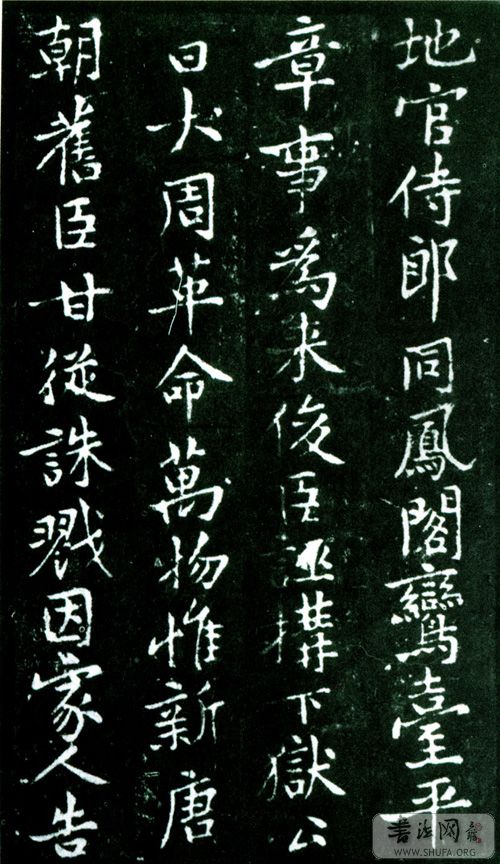 地官侍郎同鳳閣鸞臺平
章事爲来俊臣誣搆下獄公
曰大周革命萬物惟新唐
朝舊臣甘從誅戮因家人告
書法网
WWW.SHUFA.ORG